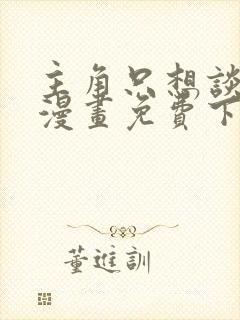 主角只想談
漫畫免費下
董進訓